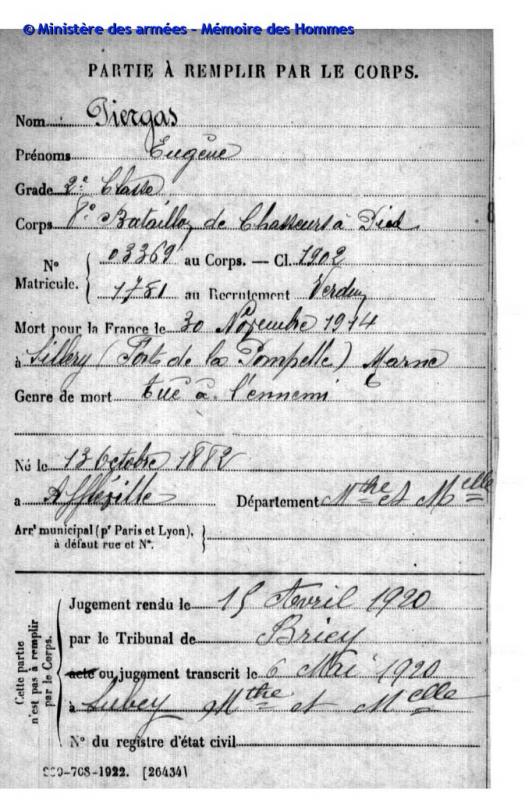 © Ministère des armées - Mémoire des Hommes
PARTIE À REMPLIR PAR LE CORPS.
Nom Piergas
Prénoms Eugène
Grade 2e Classe
Corps 8e Bataillon de Chasseurs à Pied
N° Matricule. { 03369 au Corps. — Cl. 1902
1781 au Recrutement Verdun
Mort pour la France le 30 Novembre 1914
à Sillery (Fort de la Pompelle) Marne
Genre de mort tué à l'ennemi
Né le 13 Octobre 1882
à Affléville Département Mthe et Melle
Arrt municipal (pr Paris et Lyon),
à défaut rue et N°.
Cette partie n'est pas à remplir par le Corps.
Jugement rendu le 15 Avril 1920
par le Tribunal de Briey
acte ou jugement transcrit le 6 Mai 1920
à Lubey Mthe et Melle
N° du registre d'état civil
-708-1922. [26434]